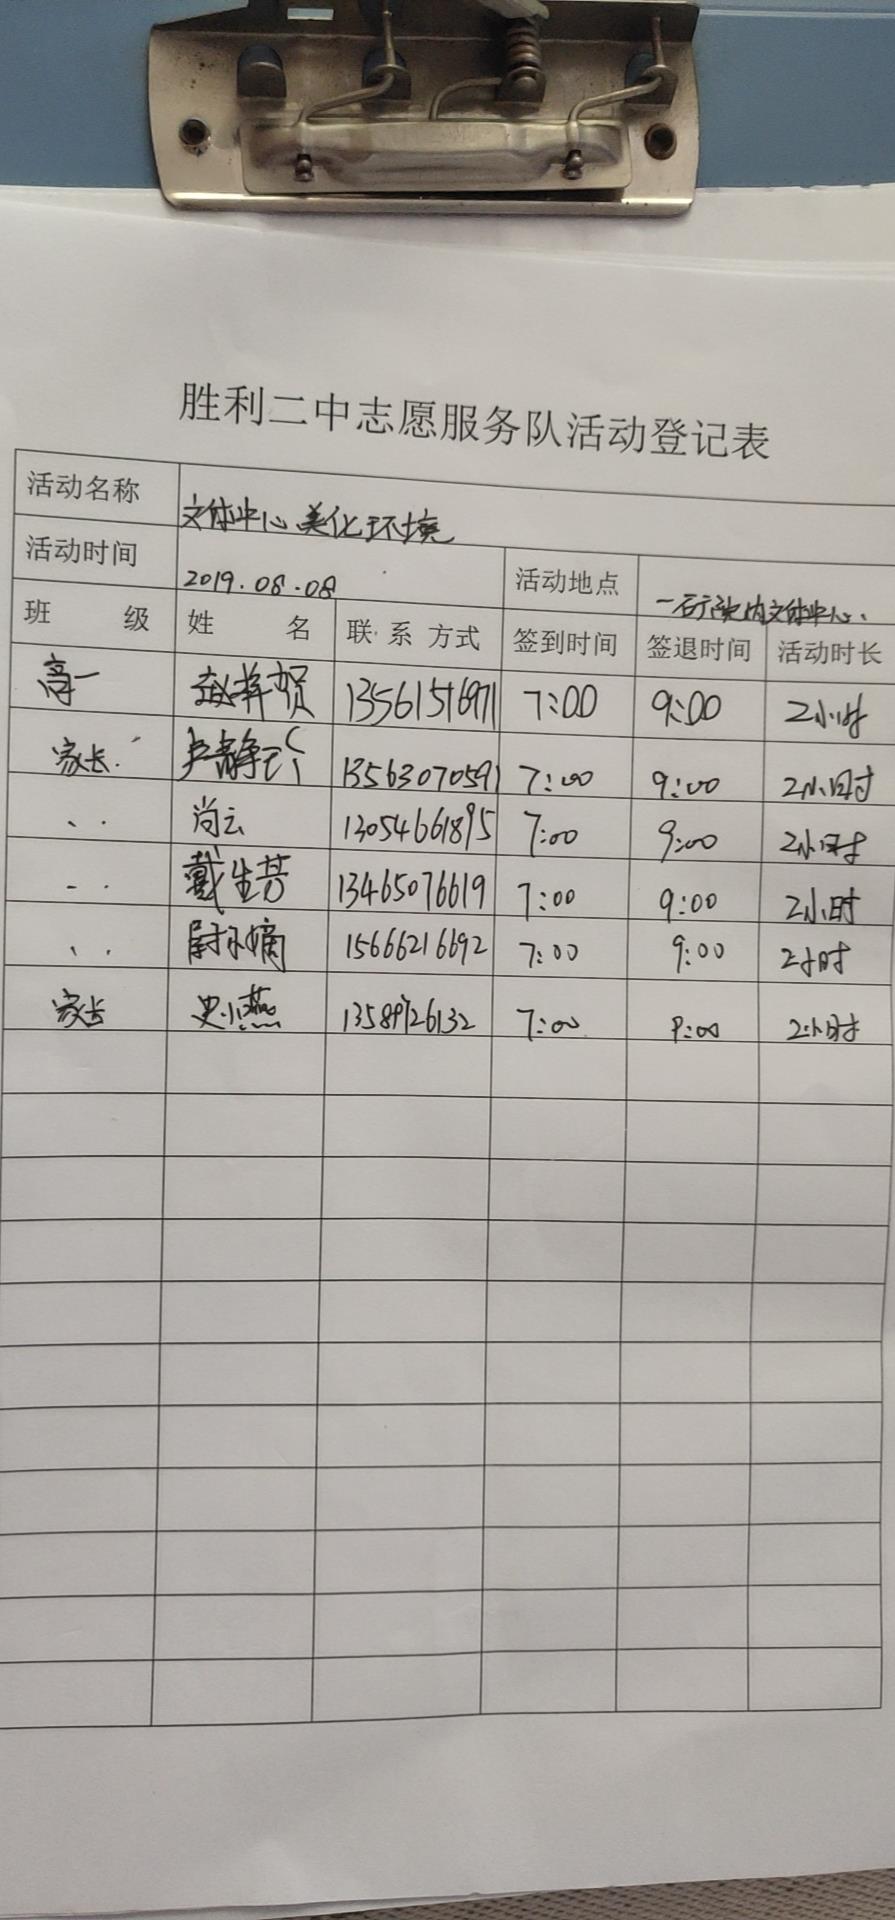 胜利二中志愿服务队活动登记表
活动名称 文体中心美化环境
活动时间 2019.08.08 活动地点 文体中心.
班 级 姓 名 联系方式 签到时间 签退时间 活动时长
高一 赵梓贺 13561516971 7:00 9:00 2小时
家长 卢静 13563070591 7:00 9:00 2小时
尚云 13054661895 7:00 9:00 2小时
戴生芳 13465076619 7:00 9:00 2小时
15666216692 7:00 9:00 2小时
家长 史小燕 7:00 9:00 2小时